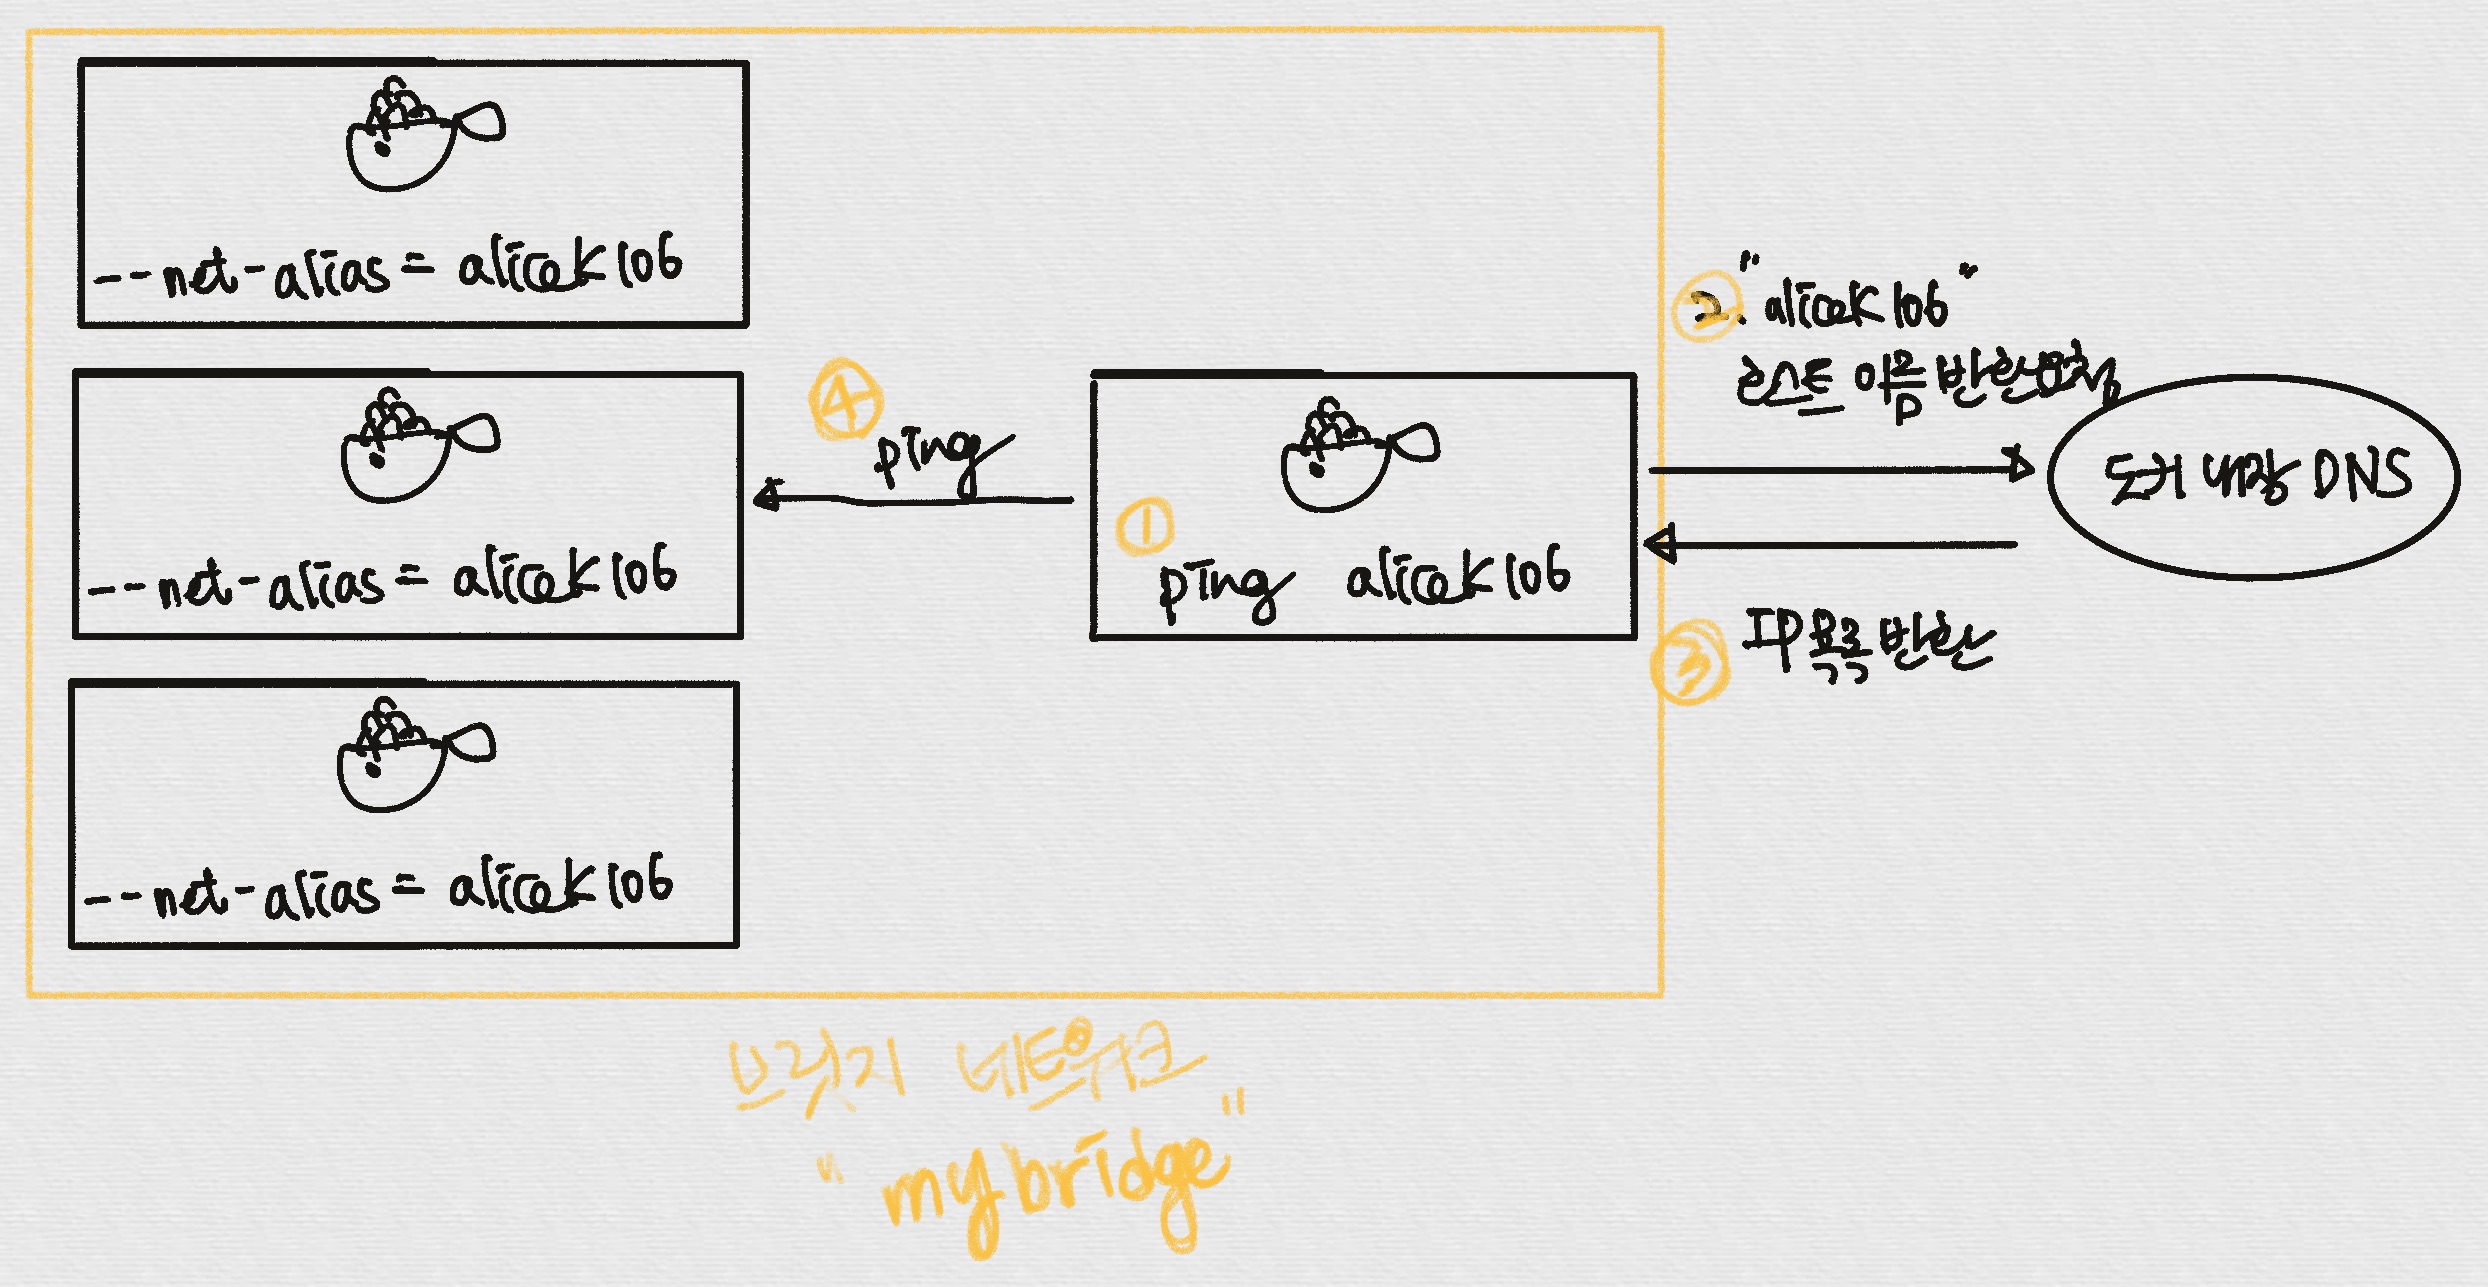 --net-alias = alicek106
--net-alias = alicek106
--net-alias = alicek106
④
ping
①
ping alicek106
2. "alicek106"
호스트 이름 반환요청
도커 내장 DNS
③ IP 목록 반환
브릿지 네트워크
"mybridge"